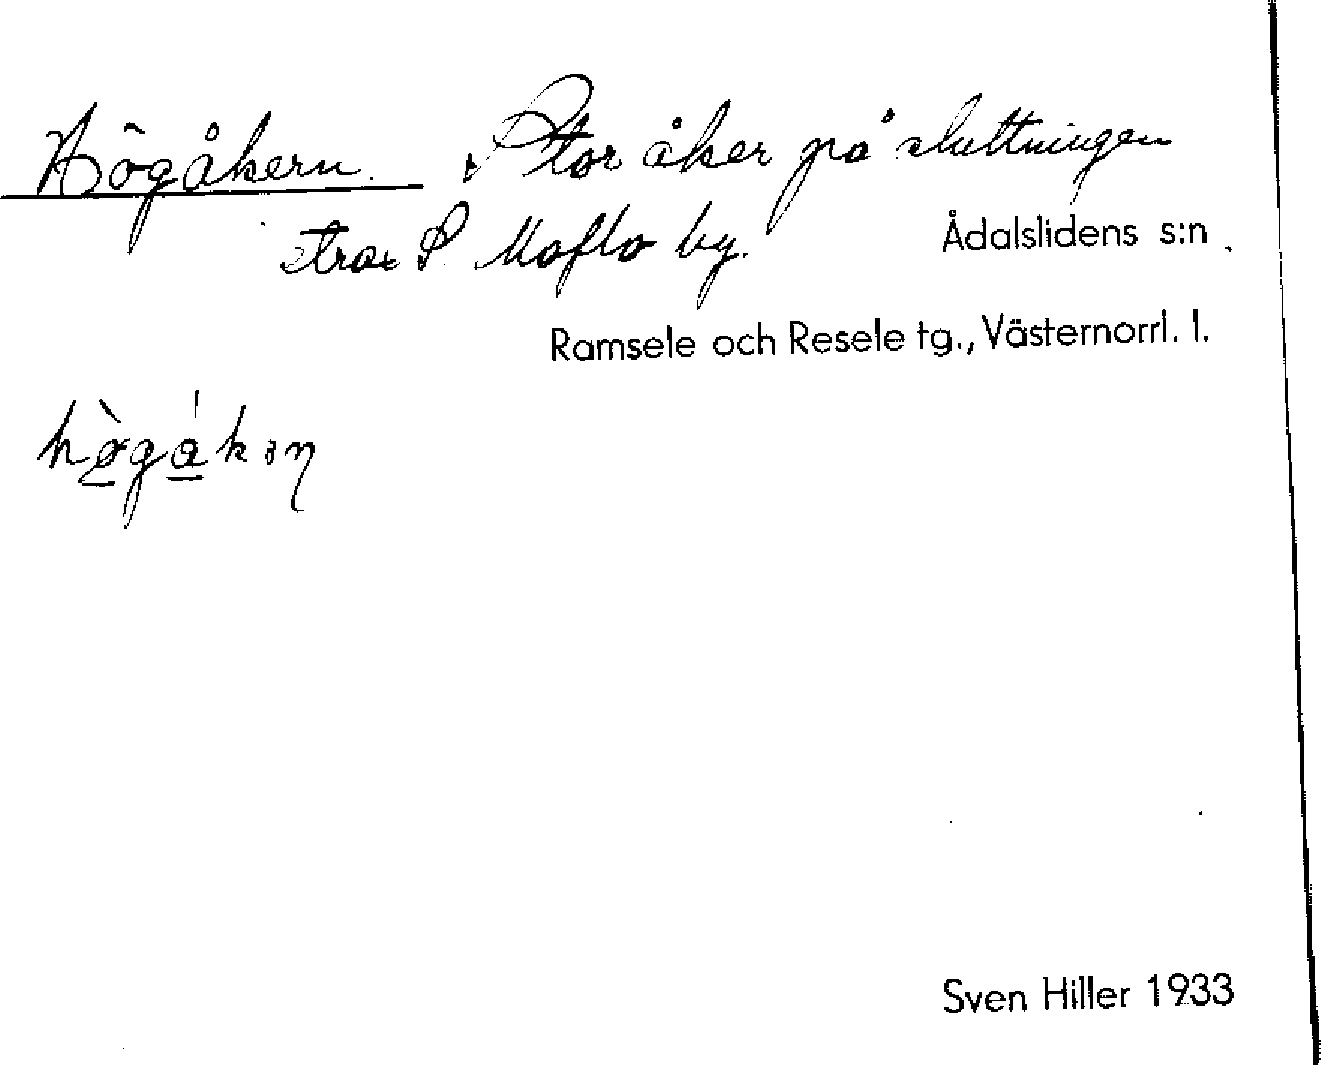 Högåkern. Stor åker på sluttningen
strax S Moflo by.
Ådalslidens s:n.
Ramsele och Resele tg., Västernorrl. l.
Sven Hiller 1933